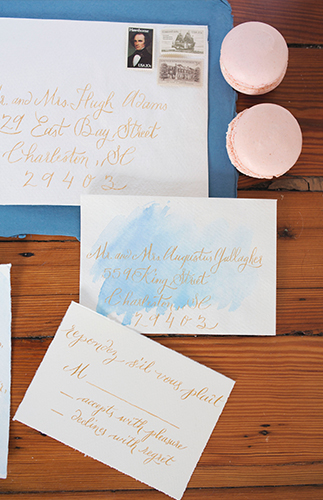 Hawthorne
USA 20c
r and Mrs. Hugh Adams
29 East Bay Street
Charleston, SC
29403
Mr. and Mrs. Augustus Gallagher
55 King Street
Charleston, SC
29403
repondez s'il vous plait
M
accepts with pleasure
declines with regret